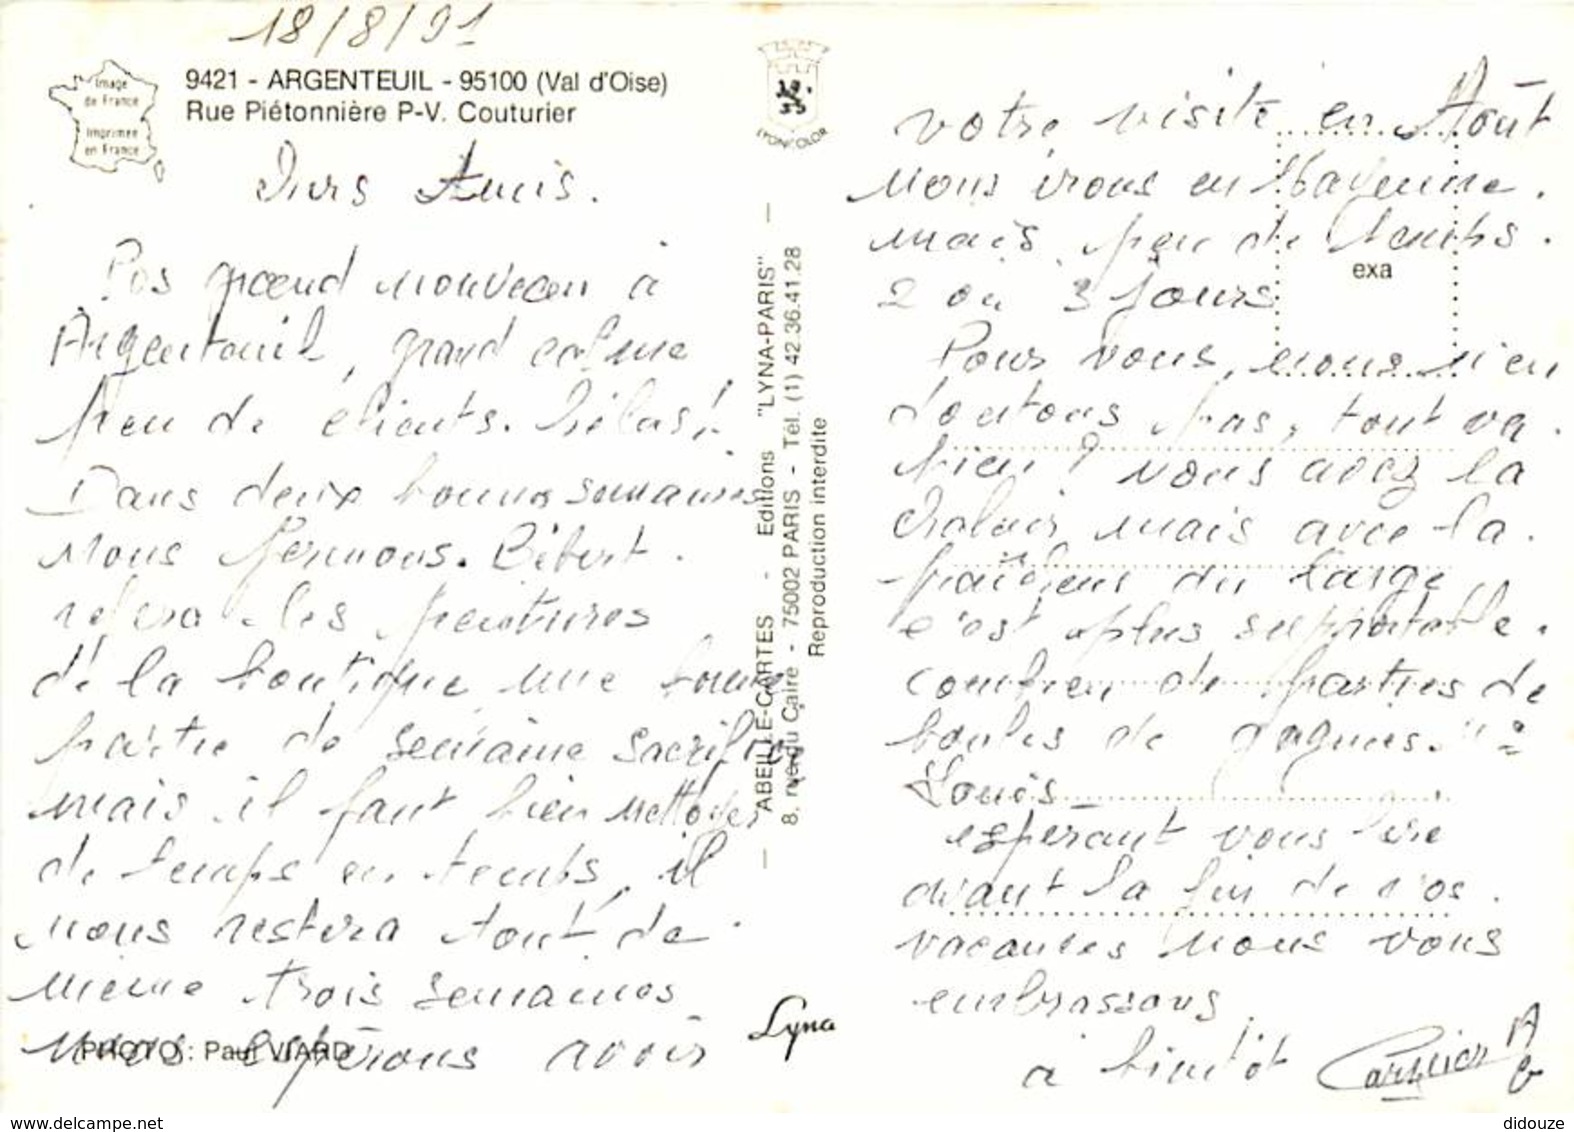 18/8/91
Image
de France
Imprimée
en France
9421 - ARGENTEUIL - 95100 (Val d'Oise)
Rue Piétonnière P-V. Couturier
LYON COLOR
Amis.
Pas grand nouveau à
Argenteuil, grand calme
peu de clients. hélas!
Dans deux bonnes semaines
nous fermons. Bébert.
refera les peintures
de la boutique, une bonne
partie de semaine
mais il faut bien nettoyer
de temps en temps, il
nous restera tout de
même trois semaines
nous espérons avoir
PHOTO : Paul VIARD
"ABEILLE-CARTES - Editions "LYNA-PARIS" -
8, rue du Caire - 75002 PARIS - Tél. (1) 42.36.41.28
Reproduction interdite
Lyna
votre visite en Août
nous irons en Mayenne.
mais peu de temps.
2 ou 3 jours
exa
Pour vous, nous n'en
doutons pas, tout va.
bien! vous avez la
chaleur mais avec la.
fraîcheur du large
c'est plus supportable.
combien de parties de
boules de gagnées.
Louis
espérant vous lire
avant la fin de vos.
vacances nous vous
embrassons
à bientôt
didouze